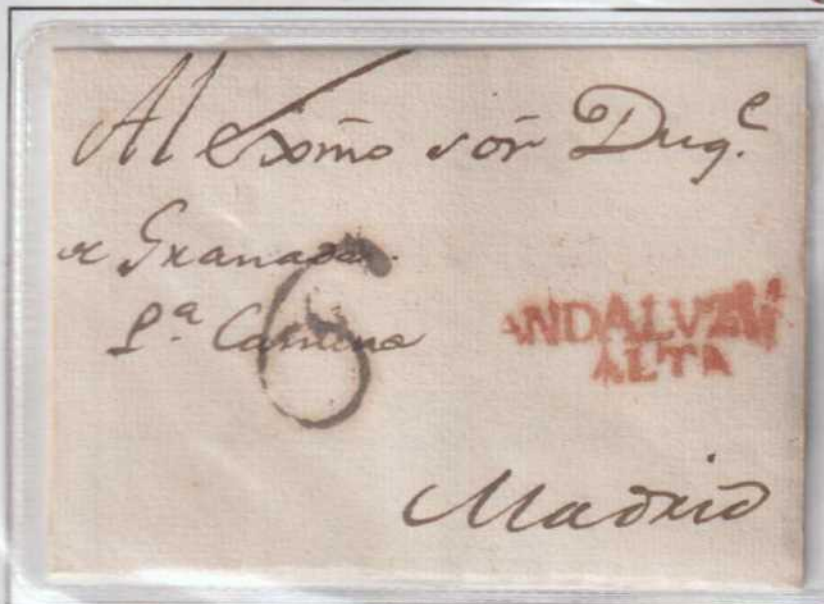 Al exmo sor Duq.e
de Granada.
P.a
6
ANDALVZIA
ALTA
Madrid